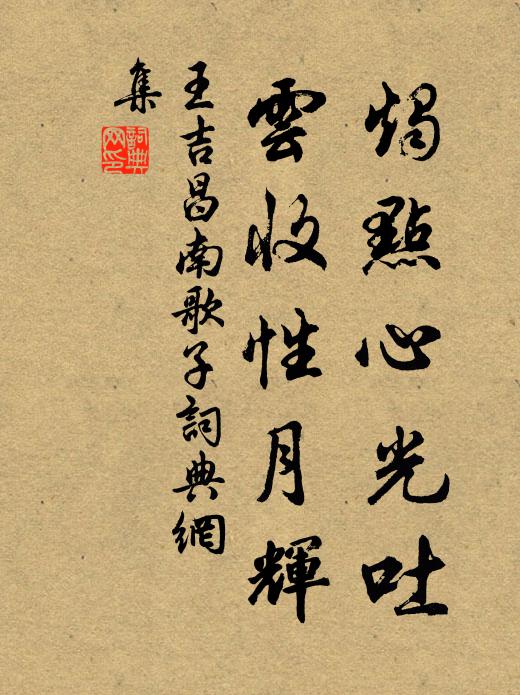 燭點心光吐
雲收性月輝
王吉昌南歌子詞典網
集
詞典網印